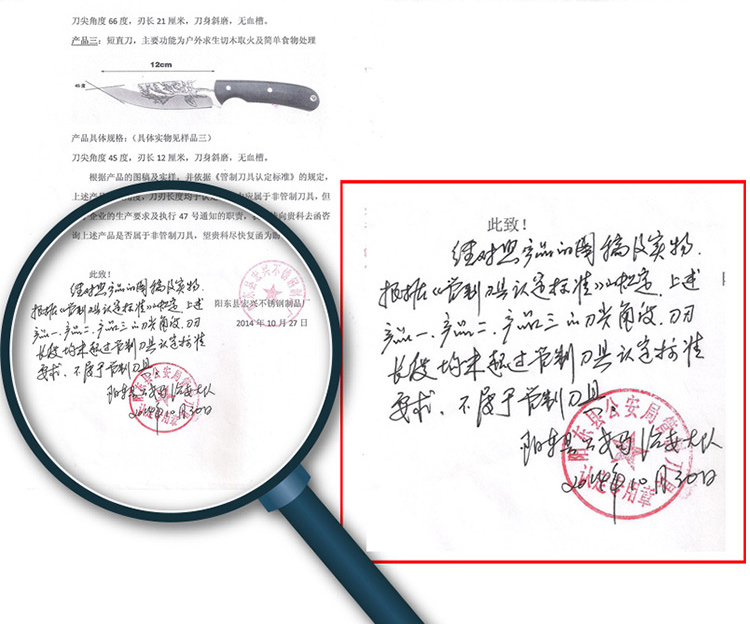 刀尖角度 66 度，刃长 21 厘米，刀身斜磨，无血槽。
产品三：短直刀，主要功能为户外求生切木取火及简单食物处理
12cm
45度
产品具体规格：（具体实物见样品三）
刀尖角度 45 度，刃长 12 厘米，刀身斜磨，无血槽。
根据产品的图稿及实样，并依据《管制刀具认定标准》的规定，
上述产品 角度，刀刃长度均 应属于非管制刀具，但
企业的生产要求及执行 47 号通知的职责， 向贵科去函咨
询上述产品是否属于非管制刀具，望贵科尽快复函为
此致！
经对照产品的图稿及实物，
根据《管制刀具认定标准》的规定，上述
产品一、产品二、产品三的刀尖角度、刀刃
长度均未超过管制刀具认定标准
要求，不属于管制刀具。
阳东县公安局治安大队
2014年10月30日
阳东县宏兴不锈钢制品厂
2014 年 10 月 27 日
此致！
经对照产品的图稿及实物，
根据《管制刀具认定标准》的规定，上述
产品一、产品二、产品三的刀尖角度、刀刃
长度均未超过管制刀具认定标准
要求，不属于管制刀具。
阳东县公安局治安大队
2014年10月30日
阳东县公安局管制刀具
认定专用章